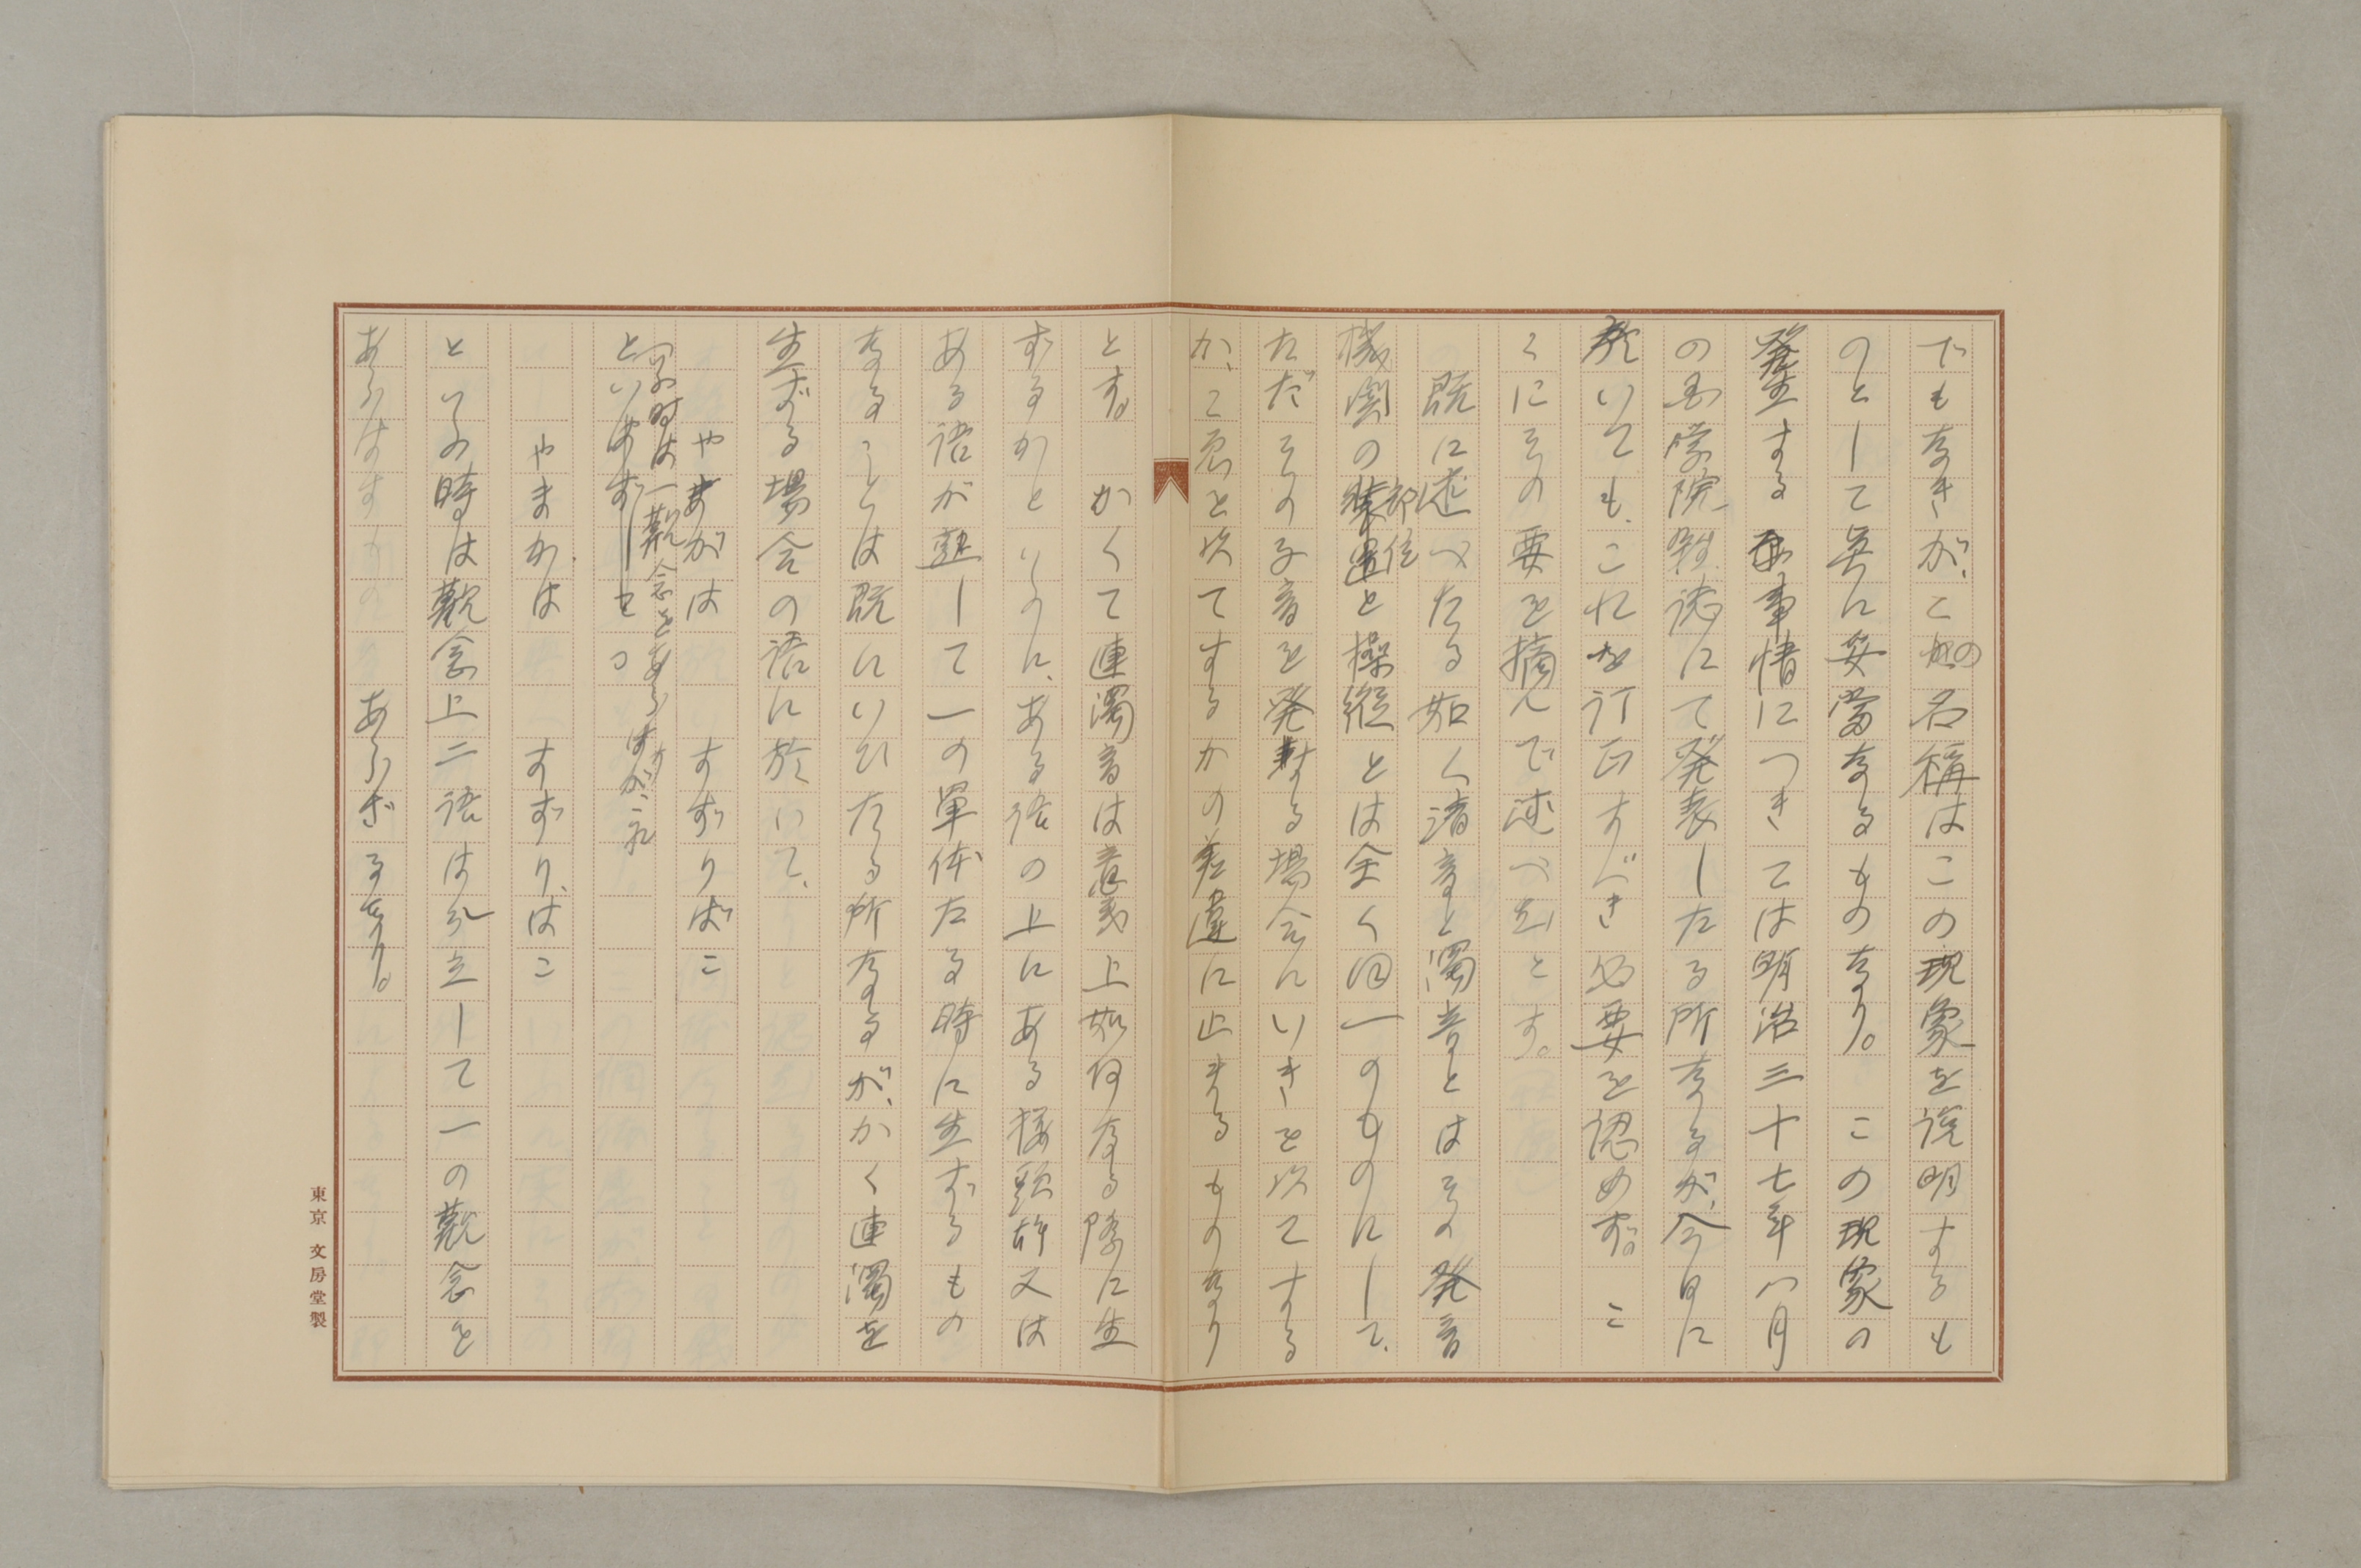 でもなきが、この名稱はこの現象を説明するも
のとして実に妥當なるものなり。 この現象の
発生する事情につきては明治三十七年八月
の國學院雜誌にて発表したる所なるが、今日に
於いても、これを訂正すべき必要を認めず。 こ
くにその要を摘んで述べむとす。
既に述べたる如く清音と濁音とはその発音
機関の部位と操縦とは全く同一のものにして、
ただその子音を発する場合にいきを以てする
か、こゑを以てするかの差違に止まるものなり
とす。 かくて連濁音は意義上如何なる際に生
ずるかといふに、ある語の上にある接頭辞又は
ある語が熟して一の単体たる時に生ずるもの
なることは既にいひたる所なるが、かく連濁を
生ずる場合の語に於いて、
やまがは すずりばこ
といふ時は一觀念をあらはすが、これを
やまかは すずり、はこ
といふ時は觀念上二語は分立して一の觀念を
あらはす あらざるなり。
東京 文房堂製